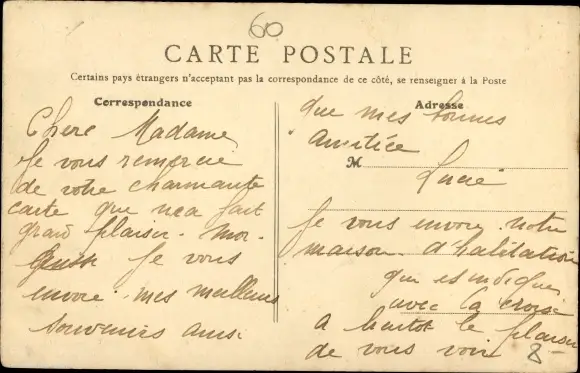 60
CARTE POSTALE
Certains pays étrangers n'acceptant pas la correspondance de ce côté, se renseigner à la Poste
Correspondance
Chere Madame
Je vous remercie
de votre charmante
carte que ma fait
grand plaisir. moi.
Je vous
envoie. mes meilleurs
souvenirs ainsi
Adresse
que mes bonnes
amitiée
M
Lucie
Je vous envoie notre
maison d'habitation
qui est indiquer
avec la croix
a bientot le plaisir
de vous voir
8-